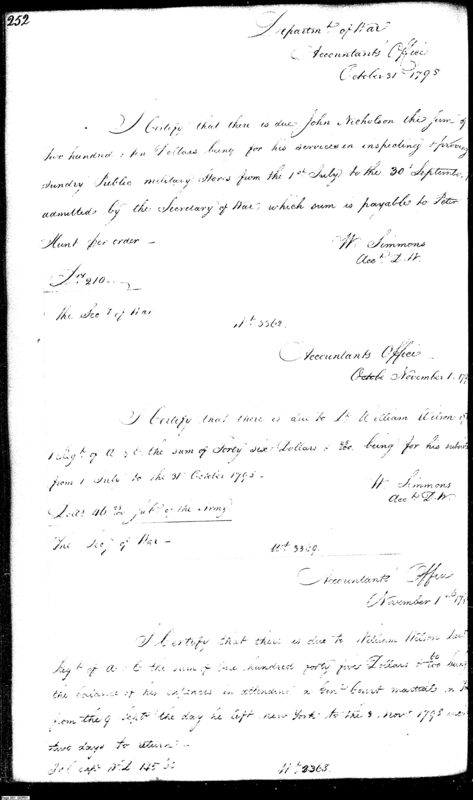 252
Departmt. of War
Accountants Office
October 31st 1795
I Certify that there is due John Nicholson the Sum of
two hundred & ten Dollars being for his services in inspecting & proving
sundry Public military Stores from the 1st July to the 30th September
admitted by the Secretary of War which sum is payable to Peter
Hunt per order —
W. Simmons
Acct. D. W.
210
The Secy of War
No. 3362
Accountants Office
Octobe November 1. 179
I Certify that there is due to Lt William Wilson of
Regt. of A & E the sum of Forty six Dollars & being for his subsis
from 1 July to the 31 October 1795 —
W Simmons
Acct. D. W.
Dolls 46 of the Army
The Secy of War —
Accountants Office
November 1st 179
I Certify that there is due to William Wilson Lieut
Regt of A & E the sum of one hundred forty five Dollars & being
the balance of his expences in attending a Genl. Court martial
from the 9 Sept. the day he left New York to the 3 Novr 1795
two days to return —
145
No. 3363